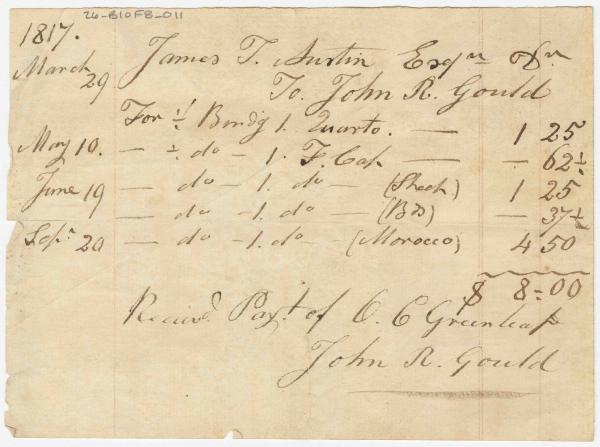 26-B10F8-011
1817.
James T. Austin Esqr. Dr.
March 29 To John R. Gould
For 1/2 Bindg 1. Quarto. — 1 25
May 10. — 1/2 do — 1. F. Cap — — 62 1/2
June 19 — do — 1. do — (Sheep) 1 25
— do — 1. do — (Bds) — 37 1/2
Sepr. 20 — do — 1. do — (Morocco) 4 50
$ 8-00
Receivd. Payt. of O. C Greenleaf
John R. Gould